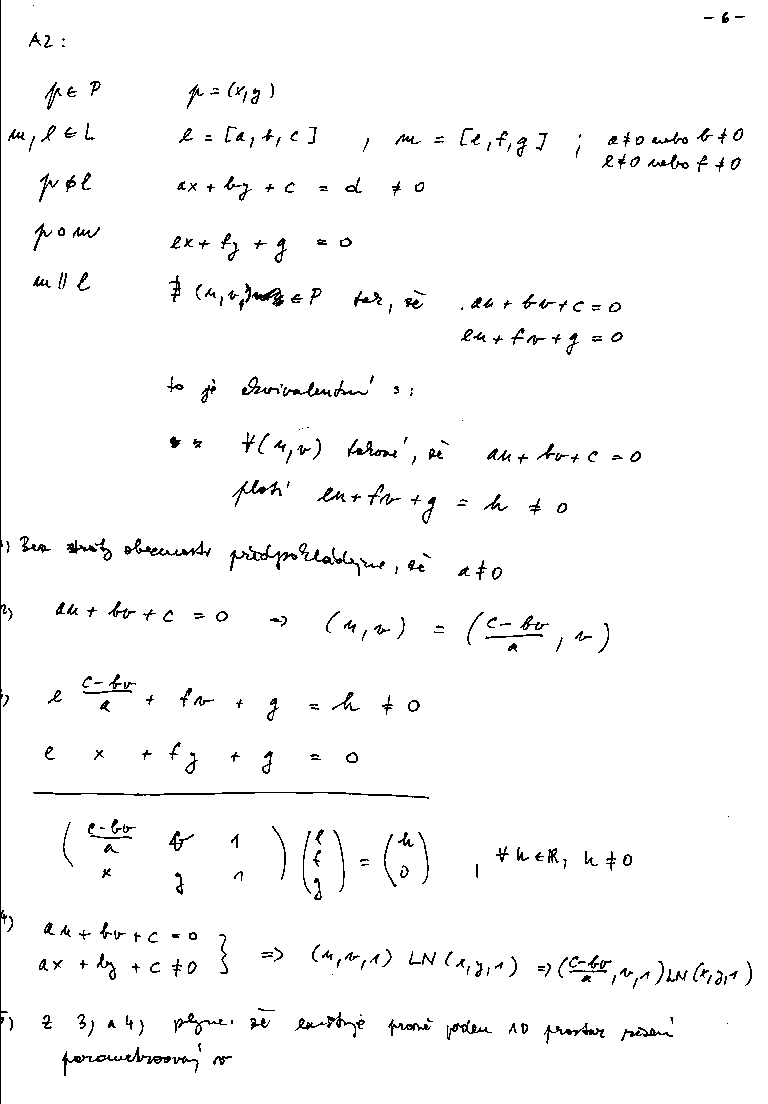 - 6 -
A2 :
p ∈ P p = (x, y)
m, l ∈ L l = [a, b, c] , m = [e, f, g] ; a ≠ 0 nebo b ≠ 0
e ≠ 0 nebo f ≠ 0
p ¢ l ax + by + c = d ≠ 0
p o m ex + fy + g = 0
m || l ∄ (u, v) ∈ P tak, že au + bv + c = 0
eu + fv + g = 0
to je ekvivalentní s :
∀(u, v) takové, že au + bv + c = 0
platí eu + fv + g = h ≠ 0
1) Bez ztráty obecnosti předpokládejme, že a ≠ 0
2) au + bv + c = 0 => (u, v) = ( (c - bv)/a , v )
3) e (c - bv)/a + fv + g = h ≠ 0
e x + fy + g = 0
( (c - bv)/a v 1 ) ( e ) = ( h ) , ∀h ∈ R, h ≠ 0
( x y 1 ) ( f g ) ( 0 )
4) au + bv + c = 0
ax + by + c ≠ 0 } => (u, v, 1) LN (x, y, 1) => ( (c - bv)/a , v, 1) LN (x, y, 1)
5) Z 3) a 4) plyne, že existuje právě jeden 1D prostor řešení
parametrizovaný v